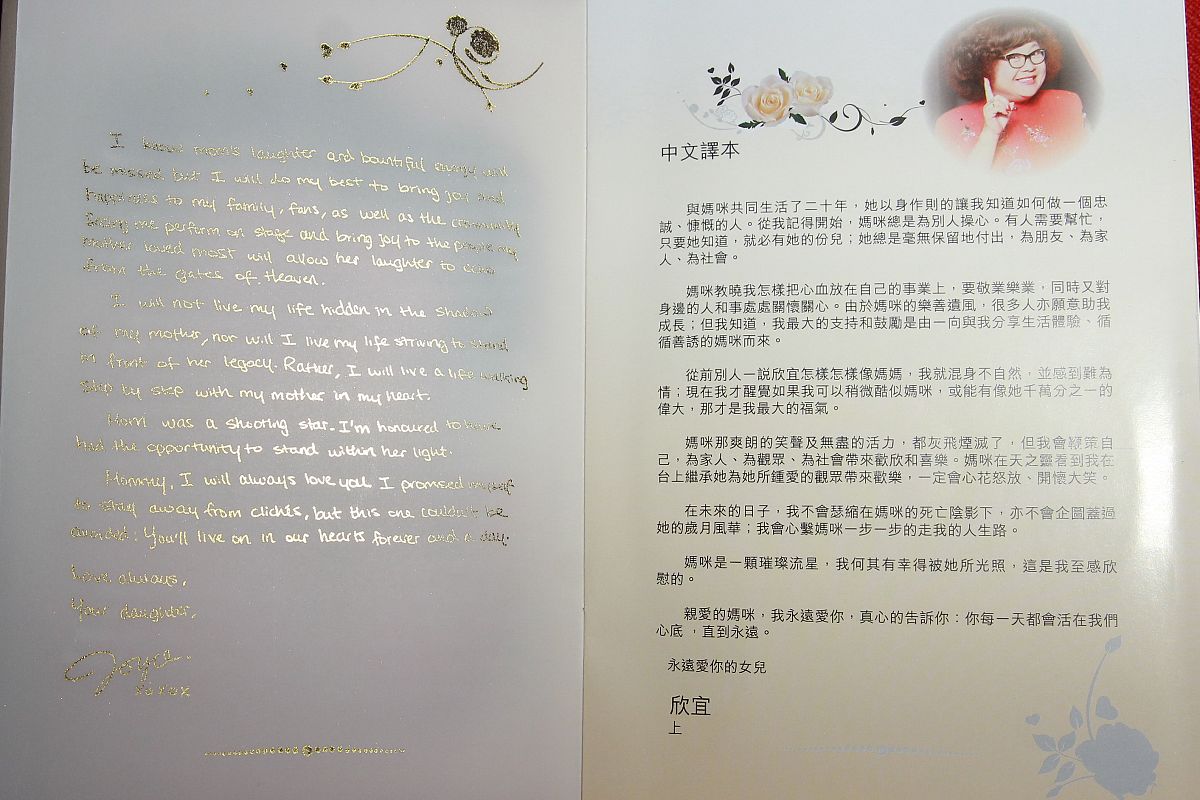 I know mom's laughter and bountiful energy will
be missed but I will do my best to bring joy and
happiness to my family, fans, as well as the community
Seeing me perform on stage and bring joy to the people my
mother loved most will allow her laughter to echo
from the gates of Heaven.
I will not live my life hidden in the shadow
of my mother, nor will I live my life striving to stand
in front of her legacy. Rather, I will live a life walking
step by step with my mother in my heart.
Mom was a shooting star. I'm honoured to have
had the opportunity to stand within her light.
Mommy, I will always love you. I promised myself
to stay away from clichés, but this one couldn't be
avoided: You'll live on in our hearts forever and a day.
Love always,
Your daughter,
Joyce
xoxox
中文譯本
與媽咪共同生活了二十年，她以身作則的讓我知道如何做一個忠
誠、慷慨的人。從我記得開始，媽咪總是為別人操心。有人需要幫忙，
只要她知道，就必有她的份兒；她總是毫無保留地付出，為朋友、為家
人、為社會。
媽咪教曉我怎樣把心血放在自己的事業上，要敬業樂業，同時又對
身邊的人和事處處關懷關心。由於媽咪的樂善遺風，很多人亦願意助我
成長；但我知道，我最大的支持和鼓勵是由一向與我分享生活體驗、循
循善誘的媽咪而來。
從前別人一說欣宜怎樣怎樣像媽媽，我就混身不自然，並感到難為
情；現在我才醒覺如果我可以稍微酷似媽咪，或能有像她千萬分之一的
偉大，那才是我最大的福氣。
媽咪那爽朗的笑聲及無盡的活力，都灰飛煙滅了，但我會鞭策自
己，為家人、為觀眾、為社會帶來歡欣和喜樂。媽咪在天之靈看到我在
台上繼承她為她所鍾愛的觀眾帶來歡樂，一定會心花怒放、開懷大笑。
在未來的日子，我不會瑟縮在媽咪的死亡陰影下，亦不會企圖蓋過
她的歲月風華；我會心繫媽咪一步一步的走我的人生路。
媽咪是一顆璀璨流星，我何其有幸得被她所光照，這是我至感欣
慰的。
親愛的媽咪，我永遠愛你，真心的告訴你：你每一天都會活在我們
心底，直到永遠。
永遠愛你的女兒
欣宜
上